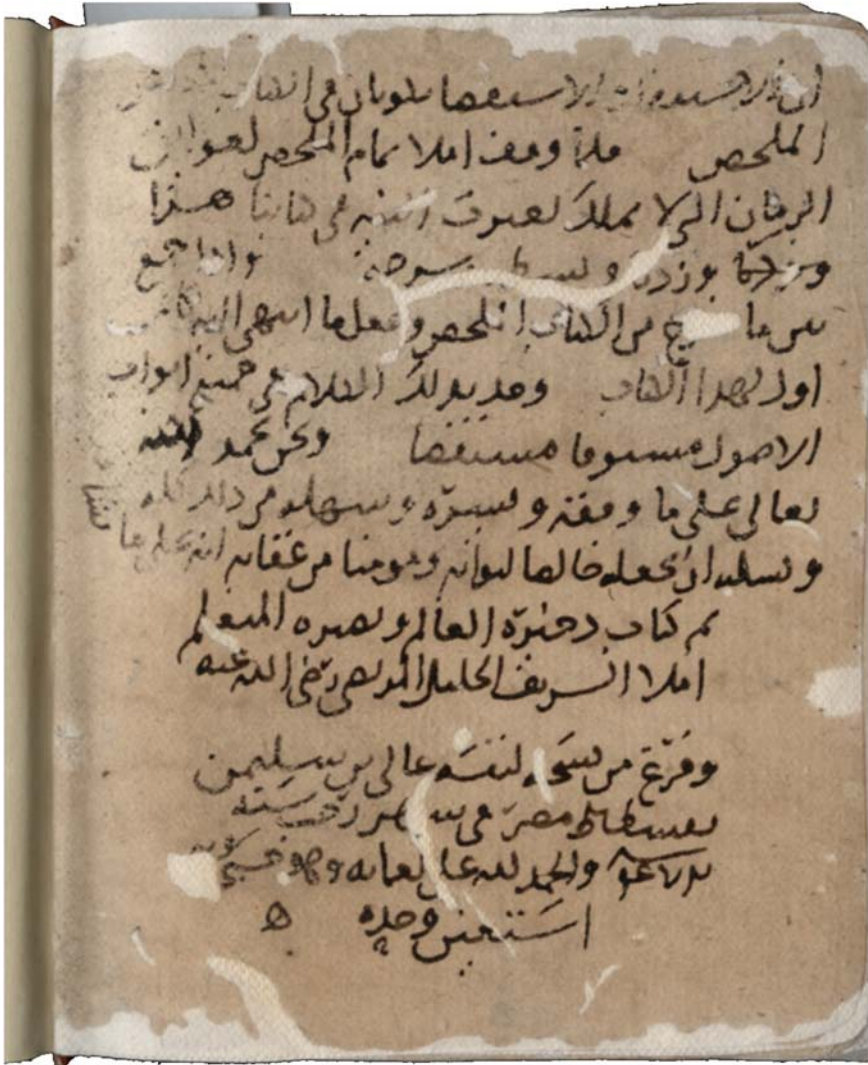 ان الاستيفا والاستقصا يكونان في الكتاب
الملخص فلما وقف املا تمام الملخص لعوائق
الزمان التي لا تملك تغيرت النية في كتابنا هذا
وزدنا وبسطه وشرحه واذا جمع
بين ما خرج من الكتاب الملخص وجعل ما انتهى اليه
اول لهذا الكتاب وجد بذلك الكلام في جميع ابواب
الاصول مستوفا مستقصا ونحن نحمد الله
تعالى على ما وفقه ويسره وسهله من ذلك كله
ونسله ان يجعله خالصا لثوابه ومومنا من عقابه انه على ما يشا
تم كتاب ذخيرة العالم وبصيرة المتعلم
املا الشريف الجليل المرتضى رضي الله عنه
وفرغ من نسخه لنفسه عالي بن سليمن
بفسطاط مصر في شهر رجب سنة
والحمد لله على نعمايه وهو حسبي وبه
استعين وحده ه